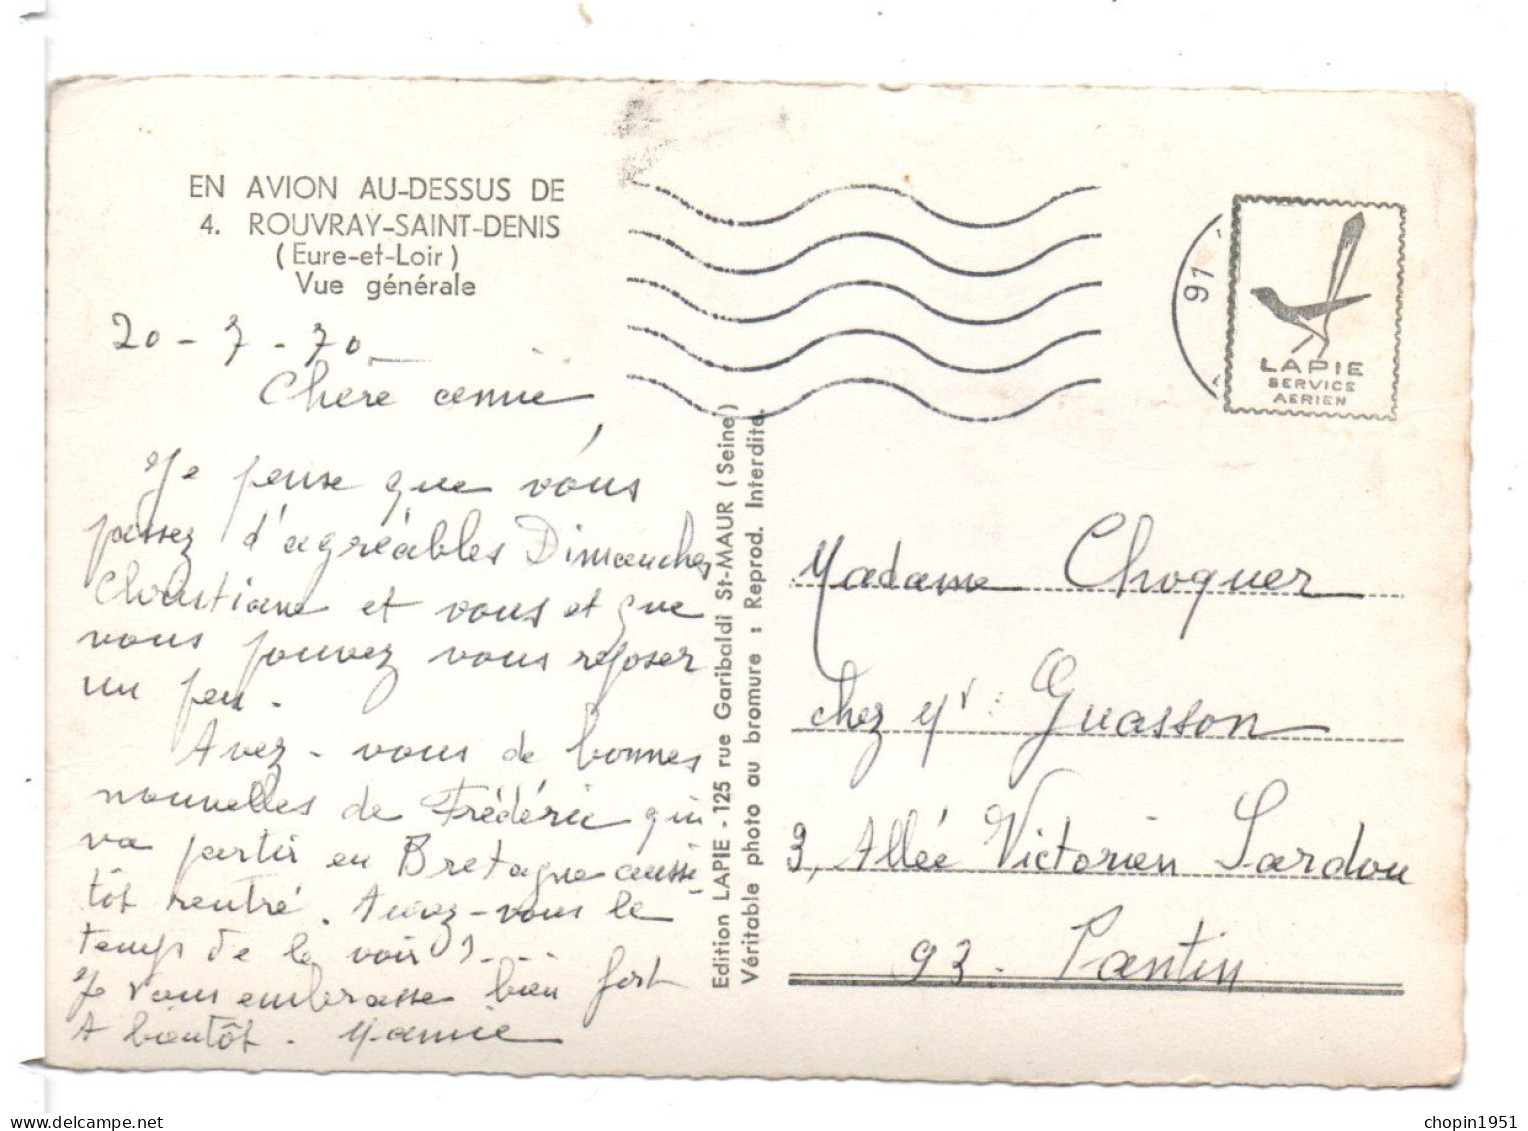 EN AVION AU-DESSUS DE
4. ROUVRAY-SAINT-DENIS
(Eure-et-Loir)
Vue générale
20 - 7 - 70
Chère amie
Je pense que vous
passez d'agréables Dimanches
Christiane et vous et que
vous pouvez vous reposer
un peu.
Avez-vous de bonnes
nouvelles de Frédéric qui
va partir en Bretagne aussi-
tôt rentré. Aurez-vous le
temps de le voir ?...
Je vous embrasse bien fort
A bientôt. Mamie
Edition LAPIE - 125 rue Garibaldi St-MAUR (Seine)
Véritable photo au bromure : Reprod. Interdite.
91
LAPIE
SERVICE
AERIEN
Madame Choquer
chez Mr Guasson
3, Allée Victorien Sardou
93. Pantin
chopin1951